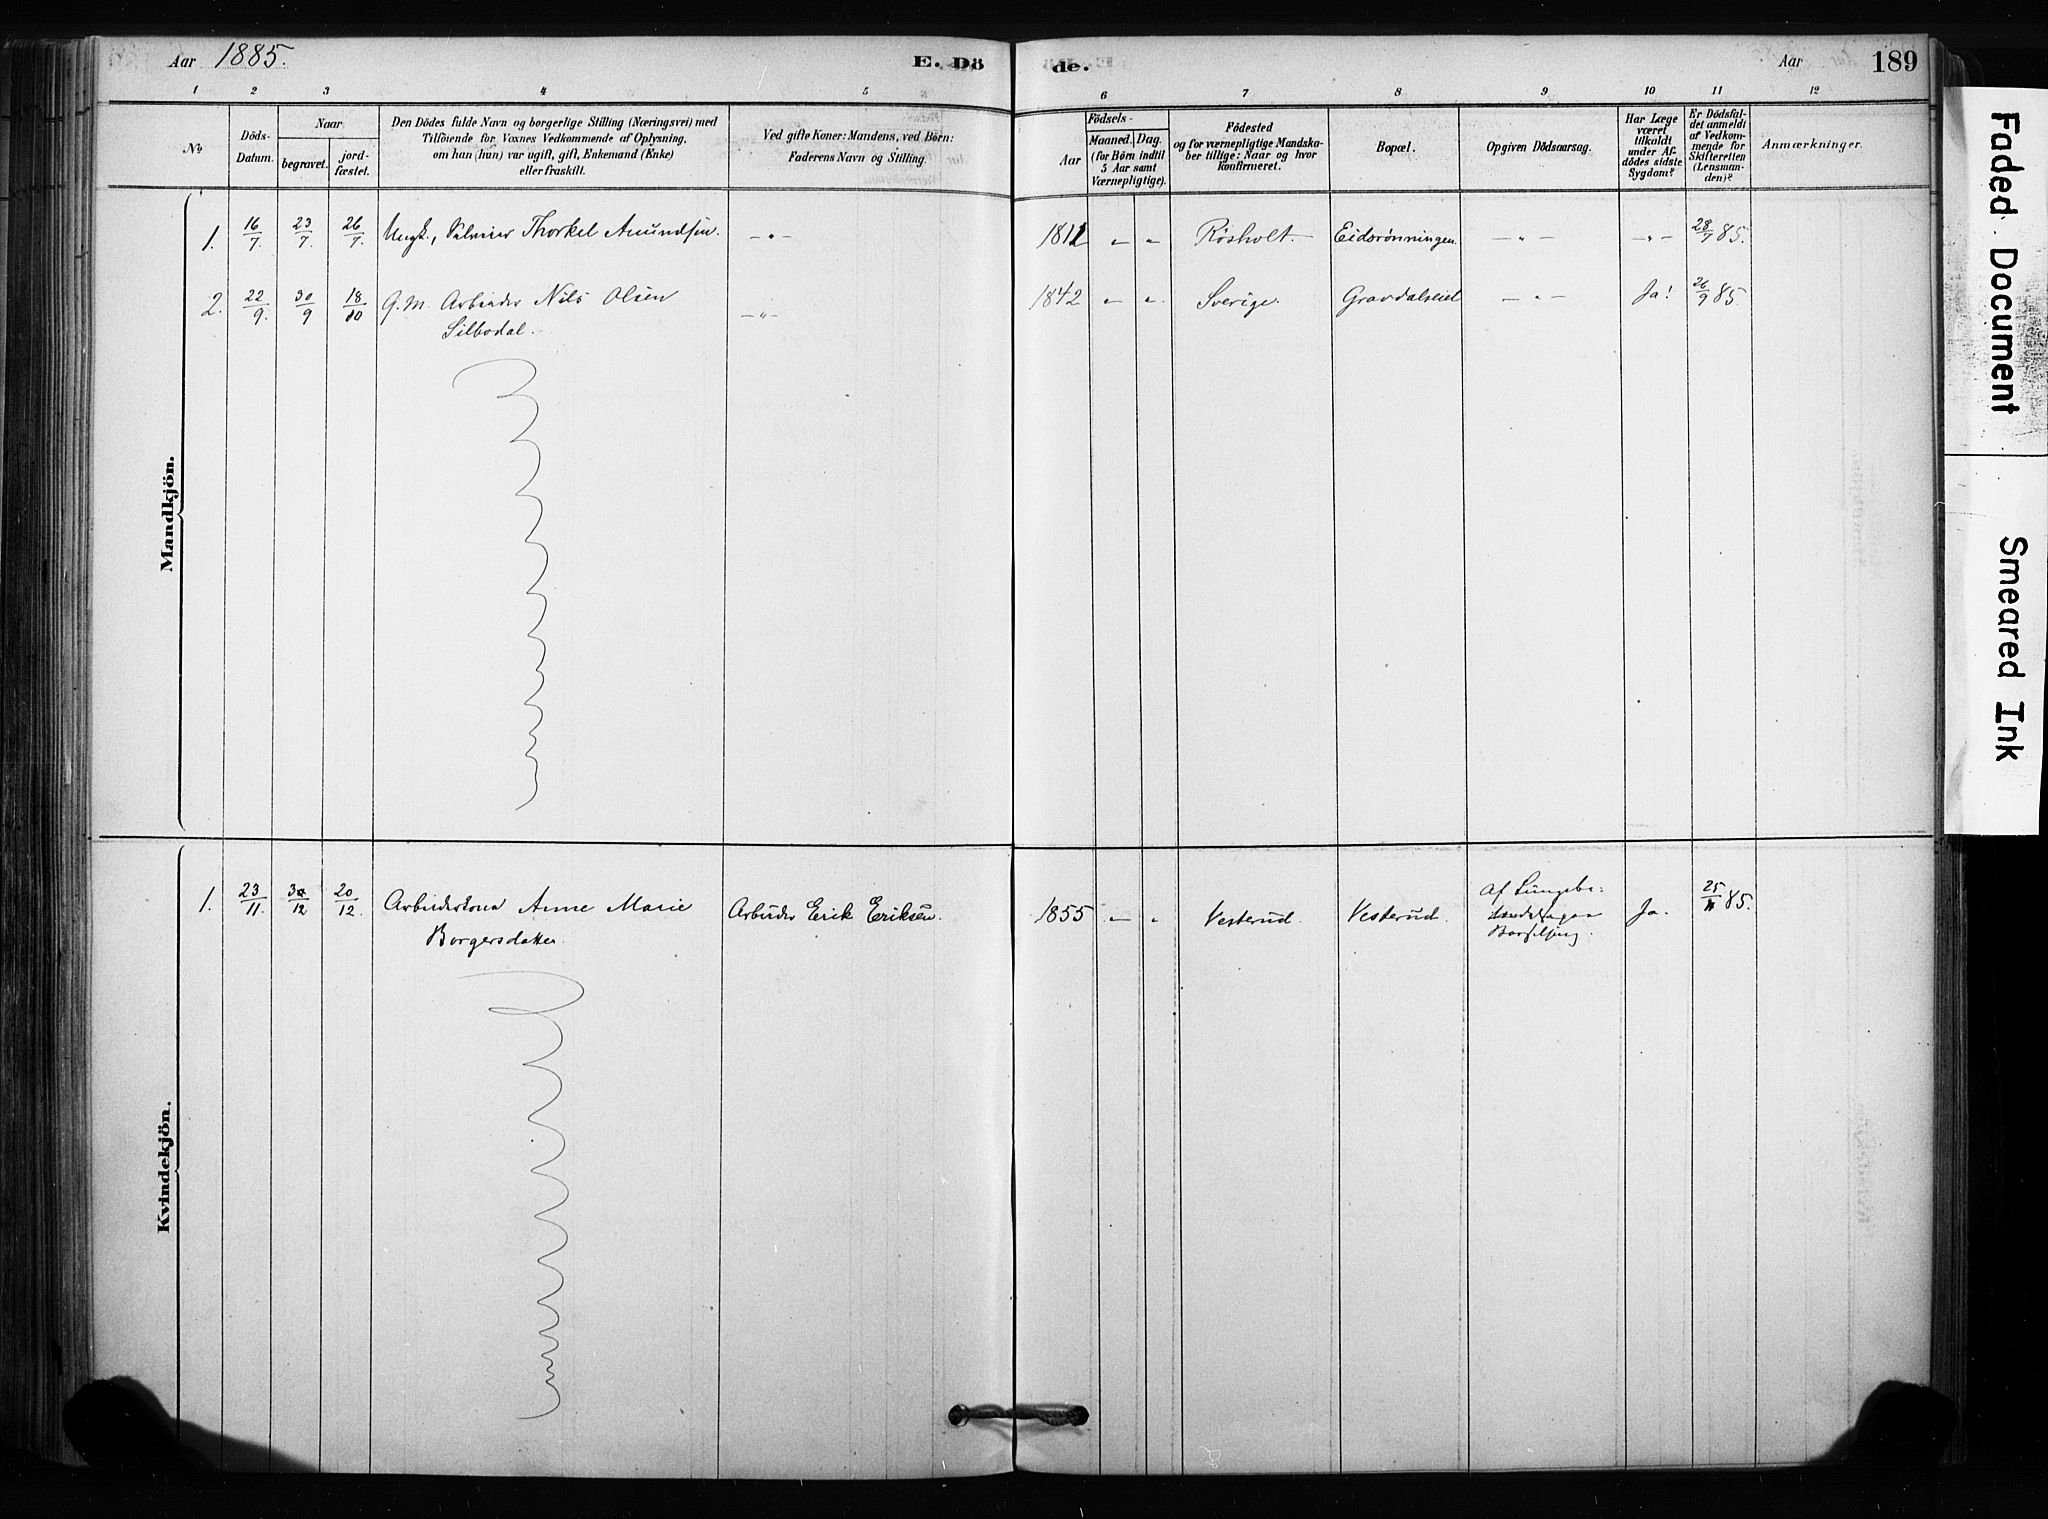 Aar 1885.
E. Dö
de.
Aar
189
1 2 3 4 5 6 7 8 9 10 11 12
No
Döds-
Datum.
Naar
begravet.
jord-
fæstet.
Den Dödes fulde Navn og borgerlige Stilling (Næringsvei) med
Tilföiende for Voxnes Vedkommende af Oplysning,
om han (hun) var ugift, gift, Enkemand (Enke)
eller fraskilt.
Ved gifte Koner: Mandens, ved Börn:
Faderens Navn og Stilling.
Födsels-
Aar
Maaned.
Dag.
(for Börn indtil
5 Aar samt
Værnepligtige).
Födested
og for værnepligtige Mandska-
ber tillige: Naar og hvor
konfirmeret.
Bopæl.
Opgiven Dödsaarsag.
Har Læge
været
tilkaldt
under Af-
dödes sidste
Sygdom?
Er Dödsfal-
det anmeldt
af Vedkom-
mende for
Skifteretten
(Lensman-
den)?
Anmærkninger.
Mandkjön.
1. 16/7 23/7. 26/7. Ungk., Thorkel Amundsen. — " — 1812 " " Rösholt. Eidsrønningen. — " — — " — 28/7 85.
2. 22/9. 30/9 18/10 G.M. Arbeider Nils Olsen — " — 1842 " " Sverige. Gravdalseiet — " — Ja! 26/9 85.
Silbodal.
Kvindekjön.
1. 23/11. 30/12 20/12. Arbeiderkona Anne Marie Arbeider Erik Eriksen. 1855 " " Vesterud. Vesterud. Af Ja. 25/11 85.
Borgersdatter.
Faded Document
Smeared Ink